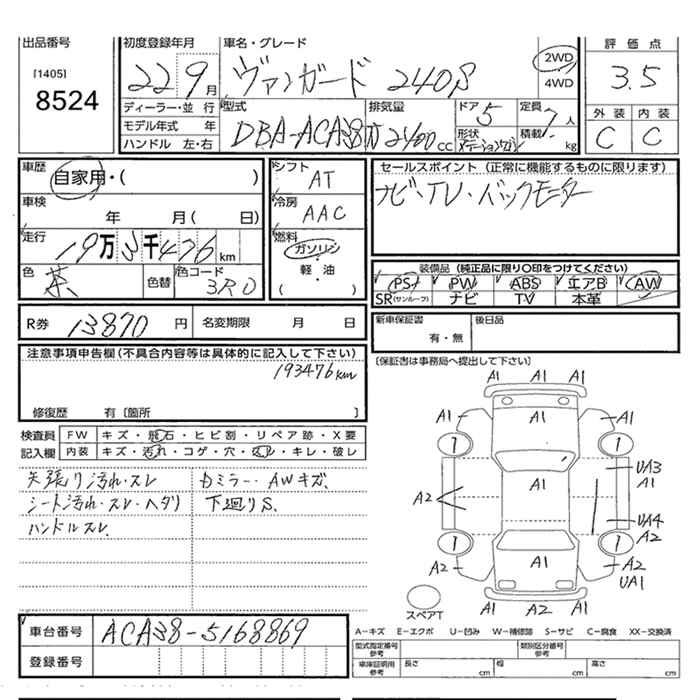 出品番号 初度登録年月 車名・グレード 評価点
[1405] 8524
22 9月 ヴァンガード 240S 2WD 4WD 3.5
ディーラー・並行 型式 排気量 ドア 定員 外装 内装
モデル年式 年 DBA-ACA38 2400cc 5 7人 C C
ハンドル 左・右 形状 積載 kg
車歴 シフト セールスポイント(正常に機能するものに限ります)
自家用・( ) AT ナビ・TV・バックモニター
車検 冷房
年 月( 日) AAC
走行 燃料
19万3千476km ガソリン
軽・油
( )
色 茶 色替 色コード 3R0
装備品(純正品に限り○印をつけてください)
PS PW ABS エアB AW
SR(サンルーフ) ナビ TV 本革
R券 13870円 名変期限 月 日
新車保証書 有・無 後日品
注意事項申告欄(不具合内容等は具体的に記入して下さい)
193476km
修復歴 有〔箇所 〕
〔保証書は事務局へ提出して下さい〕
検査員 FW キズ・飛石・ヒビ割・リペア跡・X要
記入欄 内装 キズ・汚れ・コゲ・穴・スレ・キレ・破レ
天張り汚れ・スレ カミラー・AWキズ
シート汚れ・スレ・ヘタリ 下廻りS.
ハンドルスレ.
A1 A1 A1
A1 A1 A1
1 1
A1 UA3
A1
A2
UA4
1 1 A2
A2 A1 A2
UA1
A1 A2 A1
スペアT
A-キズ E-エクボ U-凹み W-補修跡 S-サビ C-腐食 XX-交換済
車台番号 ACA38-5168869
登録番号
型式指定番号 参考 類別区分番号 参考
車庫証明用 参考 長さ cm 幅 cm 高さ cm